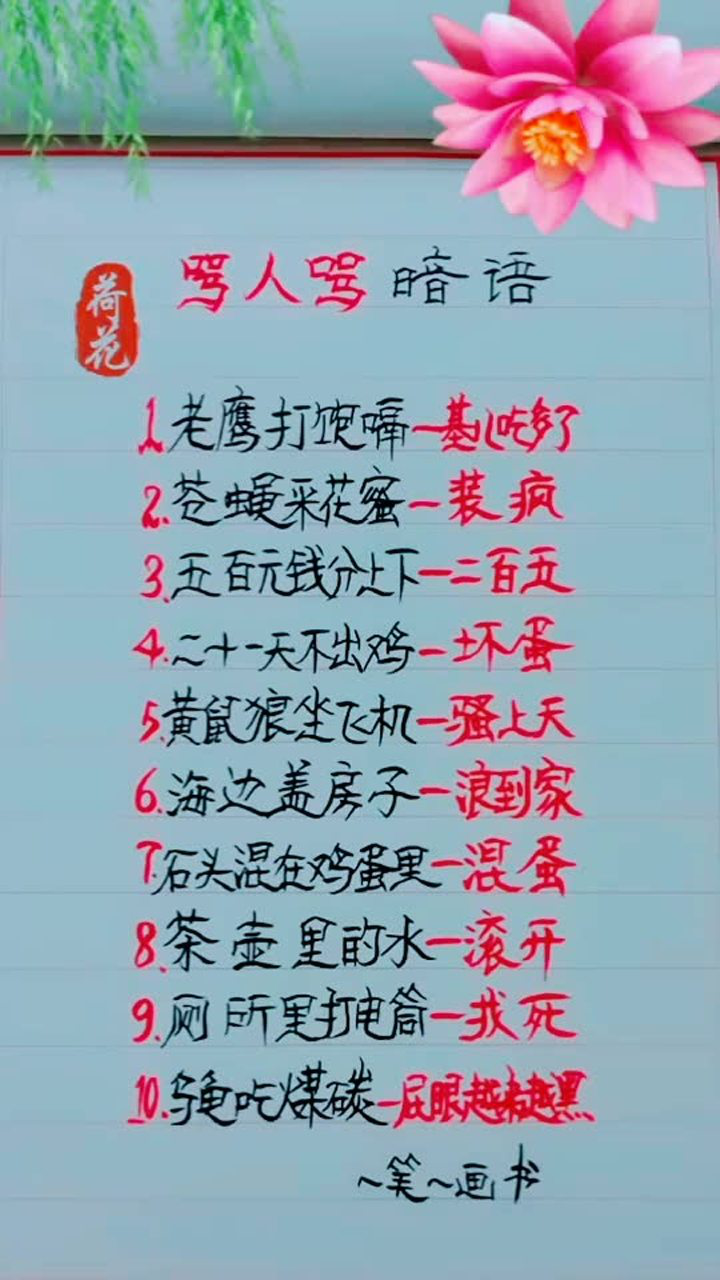 荷花
骂人骂暗语
1.老鹰打饱嗝—基儿吃多了
2.苍蝇采花蜜—装疯
3.五百元钱分上下—二百五
4.二十一天不出鸡—坏蛋
5.黄鼠狼坐飞机—骚上天
6.海边盖房子—浪到家
7.石头混在鸡蛋里—混蛋
8.茶壶里的水—滚开
9.厕所里打电筒—找死
10.乌龟吃煤碳—屁眼越越黑
~笔~画书